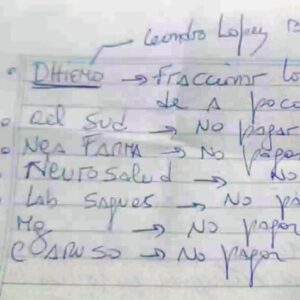 Leandro Lopez
DHIEMO → Fraccionar Lo
de A poco
del Sud → No pagar
Nea FARMA → No pagar
Neurosalud → No
Lab Sagues → No pa
Me → No pagar
CARUSO → No pagar